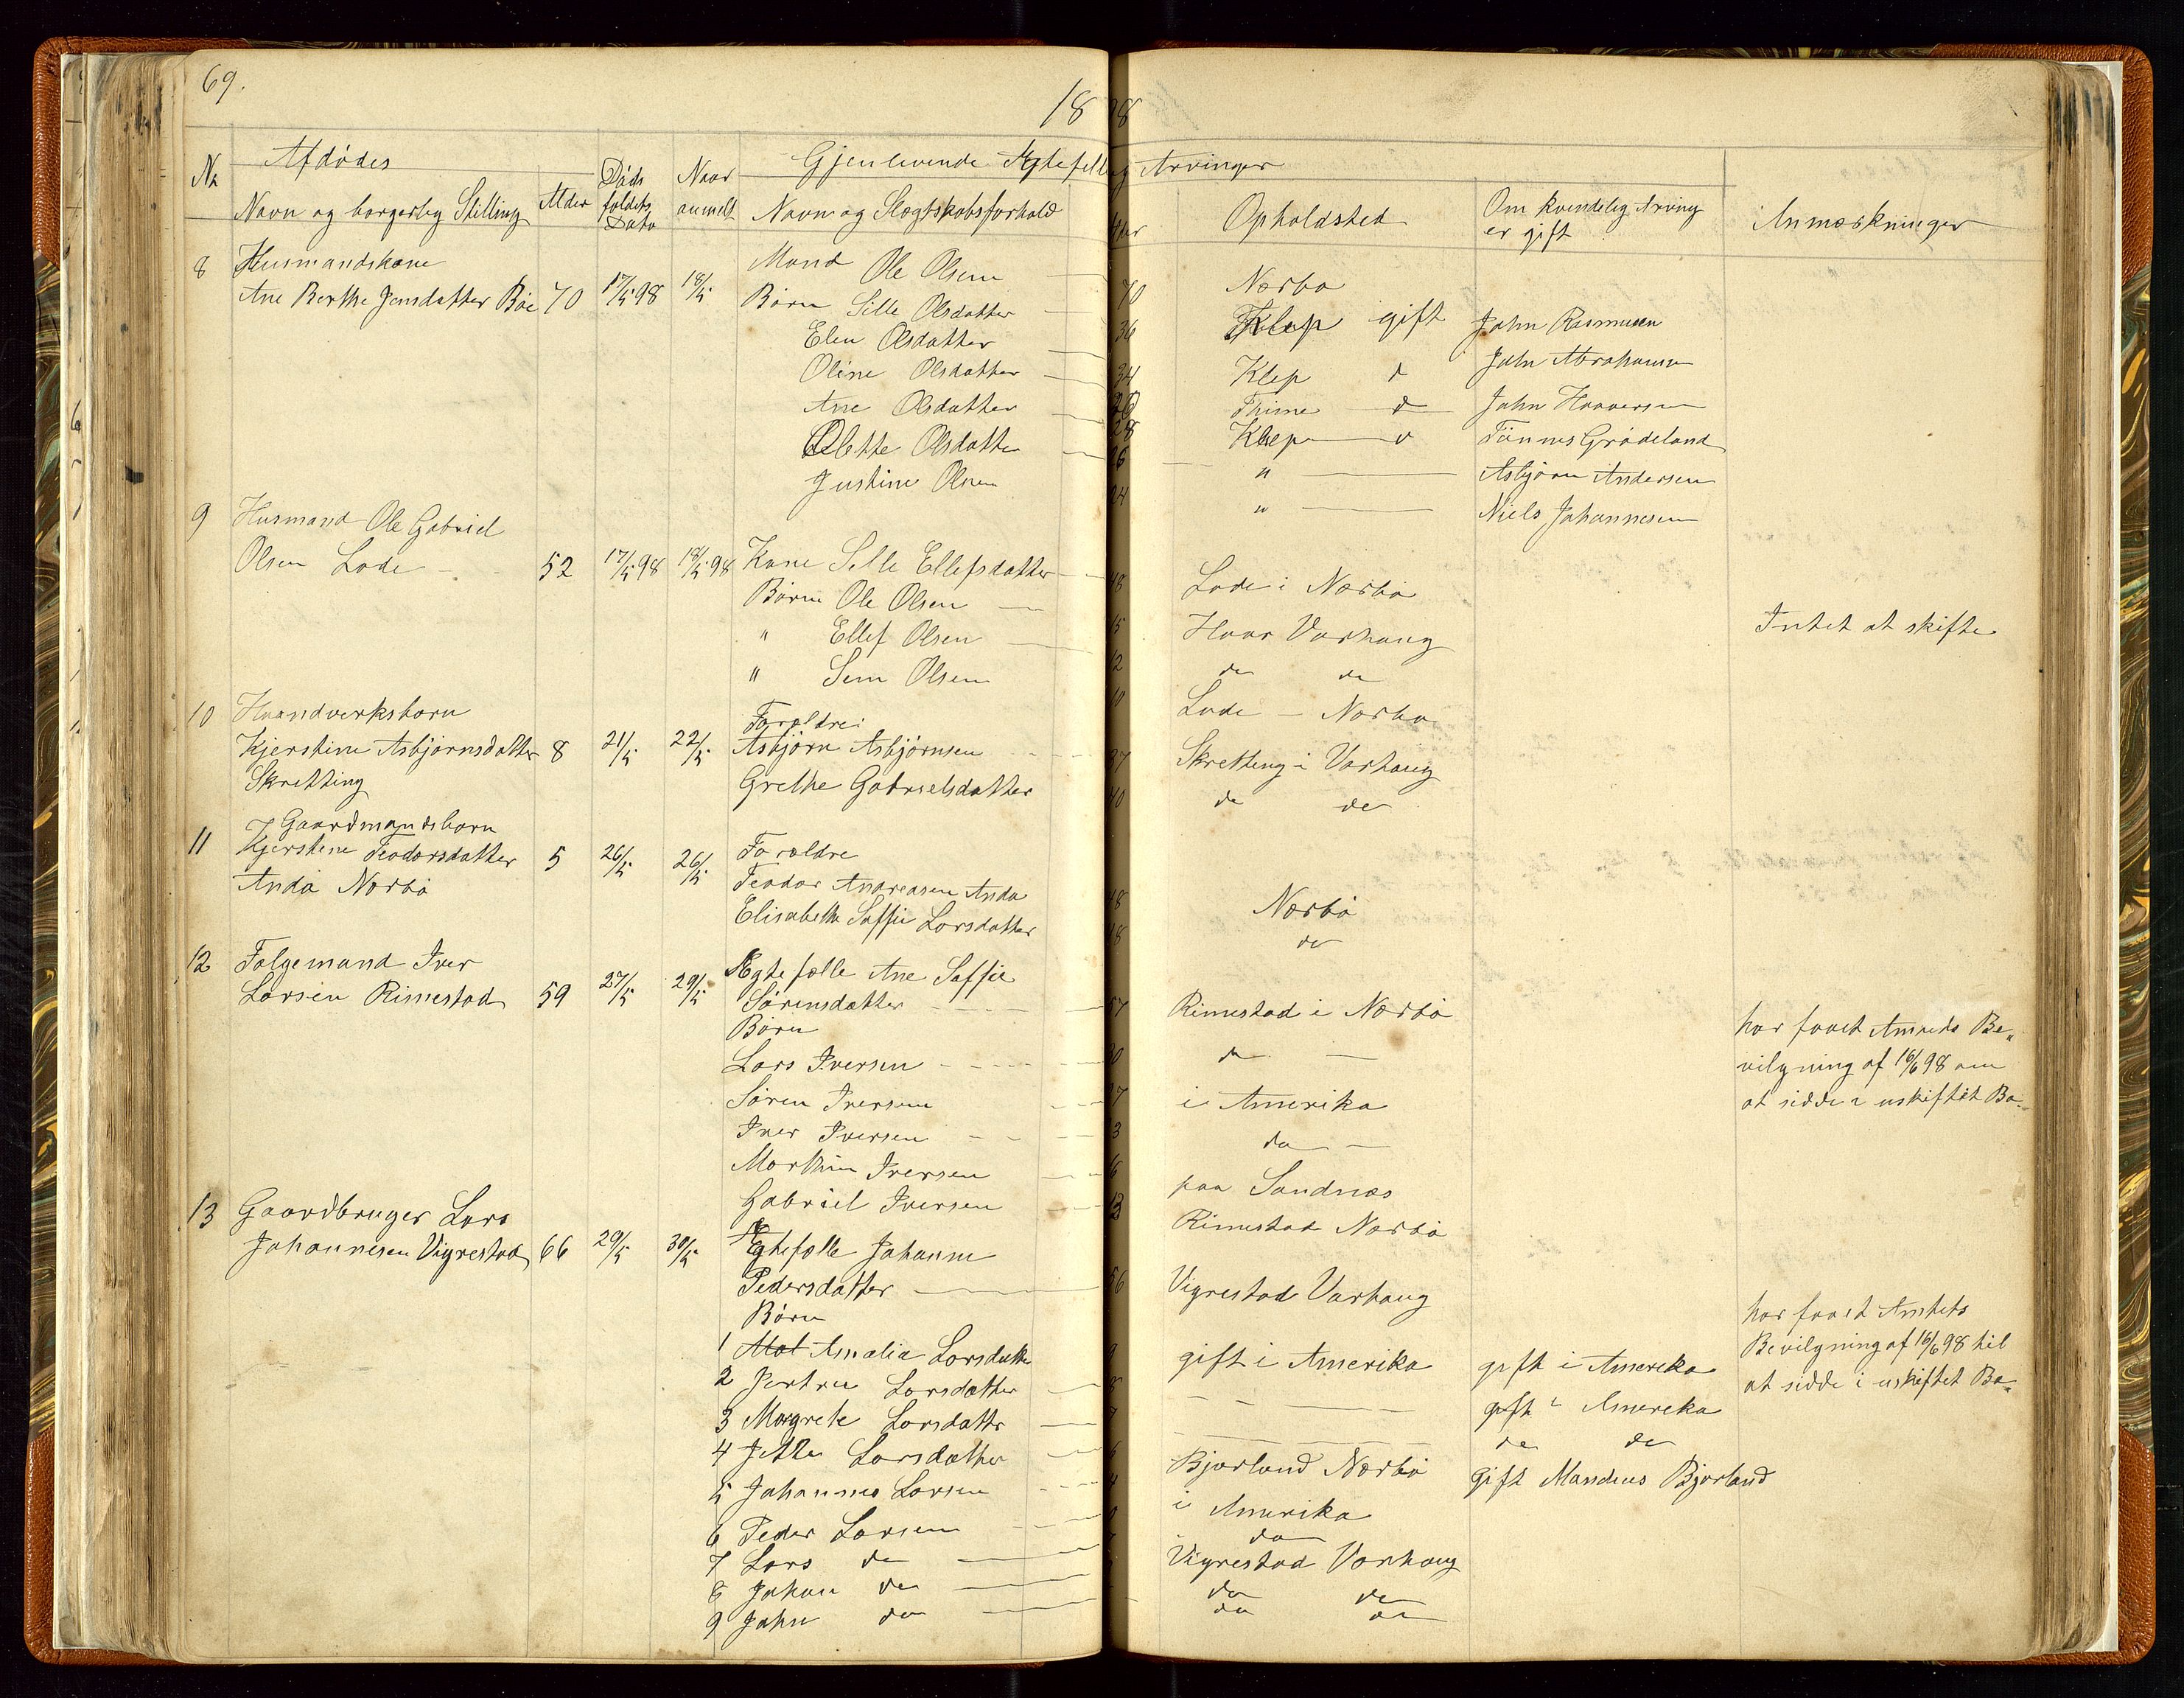 69.
1898
No
Afdødes
Døds
faldets
Dato
Naar
anmeldt
Gjenlevende Ægtefelle og Arvinger
Navn og borgerlig Stilling
Alder
Navn og Slægtskabsforhold
Alder
Opholdsted
Om kvindelig Arving
er gift
Anmærkninger
8 Husmandskone
Ane Berthe Jensdatter Bøe 70 17/5 98 18/5
Mand Ole Olsen 70 Nærbø
Børn Sille Olsdatter 36 Klep gift John Rasmussen
Elen Olsdatter 34 Klep d John Abrahamsen
Oline Olsdatter Thime d John Haaversen
Ane Olsdatter 28 Klep d Tønnes Grødeland
Olette Olsdatter 26 " Asbjørn Andersen
Justine Olsen 24 " Niels Johannesen
9 Husmand Ole Gabriel
Olsen Lode 52 17/5 98 18/5 98 Kone Sille Ellefsdatter 48 Lode i Nærbø
Børn Ole Olsen 15 Haar Varhaug Intet at skifte
" Ellef Olsen 12 do do
" Sem Olsen 10 Lode - Nærbø
10 Haandverksbarn
Kjerstine Asbjørnsdatter 8 21/5 22/5
Skretting
Forældre:
Asbjørn Asbjørnsen 37 Skretting i Varhaug
Grethe Gabrielsdatter 40 do do
11 Gaardmandsbarn
Kjerstene Teodorsdatter 5 26/5 26/5
Anda Nærbø
Forældre
Teodor Andreasen Anda 48 Nærbø
Elisabeth Soffie Larsdatter do
12 Folgemand Iver
Larsen Rimestad 59 27/5 29/5
Ægtefælle Ane Soffie
Sørensdatter 57 Rimestad i Nærbø
Børn
Lars Iversen 30 do
Søren Iversen 7 i Amerika
Iver Iversen 3 do
Marthin Iversen 16 paa Sandnæs
Gabriel Iversen 13 Rimestad Nærbø
har faaet Amtets Be-
vilgning af 16/6 98 om
at sidde i uskiftet Bo.
13 Gaardbruger Lars
Johannesen Vigrestad 66 29/5 30/5
Ægtefælle Johanne
Pedersdatter 56 Vigrestad Varhaug
Børn
1 Amalia Larsdatter gift i Amerika gift i Amerika
2 Jertru Larsdatter gift i Amerika
3 Margrete Larsdatter do do
4 Jette Larsdatter Bjorland Nærbø gift Mandius Bjorland
5 Johannes Larsen i Amerika
6 Peder Larsen do
7 Lars do Vigrestad Varhaug
8 Johan do do do
9 John do do do
har faaet Amtets
Bevilgning af 16/6 98 til
at sidde i uskiftet Bo.